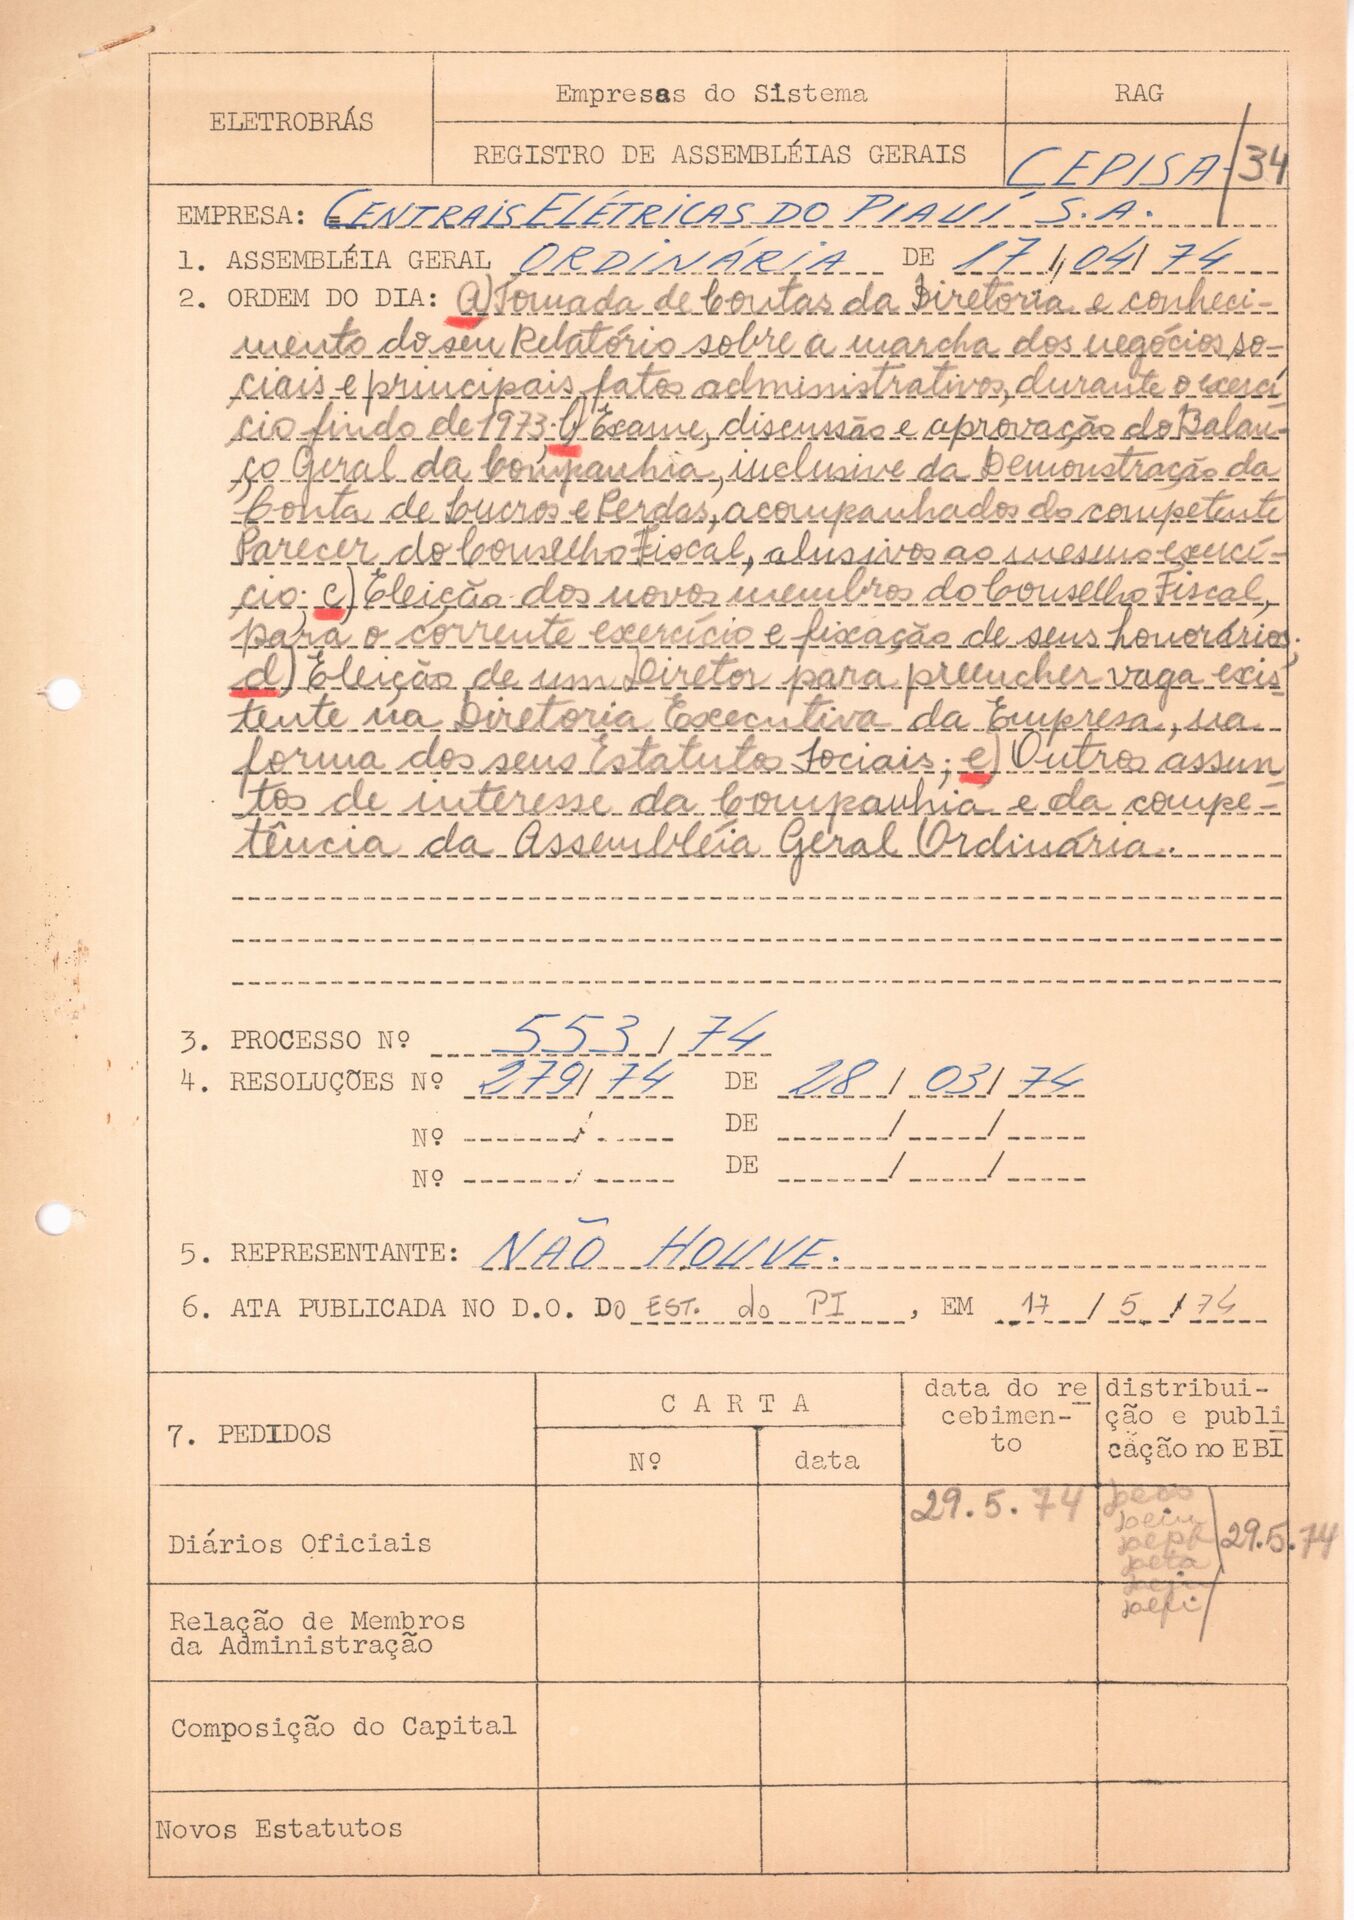 ELETROBRÁS
Empresas do Sistema
RAG
REGISTRO DE ASSEMBLÉIAS GERAIS
CEPISA/34
EMPRESA: CENTRAIS ELÉTRICAS DO PIAUÍ S.A.
1. ASSEMBLÉIA GERAL ORDINÁRIA DE 17/04/74
2. ORDEM DO DIA: a) Tomada de Contas da Diretoria e conheci-
mento do seu Relatório sobre a marcha dos negócios so-
ciais e principais fatos administrativos, durante o exercí
cio findo de 1973; b) Exame, discussão e aprovação do Balan-
ço Geral da Companhia, inclusive da Demonstração da
Conta de Lucros e Perdas, acompanhados do competente
Parecer do Conselho Fiscal, alusivos ao mesmo exercí-
cio; c) Eleição dos novos membros do Conselho Fiscal,
para o corrente exercício e fixação de seus honorários;
d) Eleição de um Diretor para preencher vaga exis-
tente na Diretoria Executiva da Empresa, na
forma dos seus Estatutos Sociais; e) Outros assun
tos de interesse da Companhia e da compe-
tência da Assembléia Geral Ordinária.
3. PROCESSO Nº 553/74
4. RESOLUÇÕES Nº 279/74 DE 28/03/74
Nº / DE / /
Nº / DE / /
5. REPRESENTANTE: NÃO HOUVE.
6. ATA PUBLICADA NO D.O. DO EST. do PI, EM 17/5/74
7. PEDIDOS
CARTA
Nº
data
data do re
cebimen-
to
distribui-
ção e publi
cação no EBI
Diários Oficiais
29.5.74
29.5.74
Relação de Membros
da Administração
Composição do Capital
Novos Estatutos